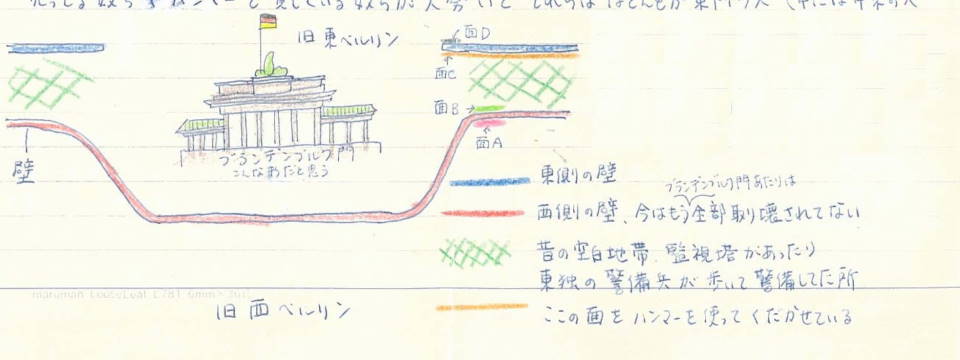 奴らが大勢いて
旧東ベルリン
面D
面C
面B→
面A
ブランデンブルク門
こんな形だと思う
壁
東側の壁
ブランデンブルク門あたりは
西側の壁、今はもう全部取り壊されてない
昔の空白地帯、監視塔があったり
東独の警備兵が歩いて警備してた所
maruman LooseLeaf
旧西ベルリン
ここの面をハンマーを使ってくだかせている